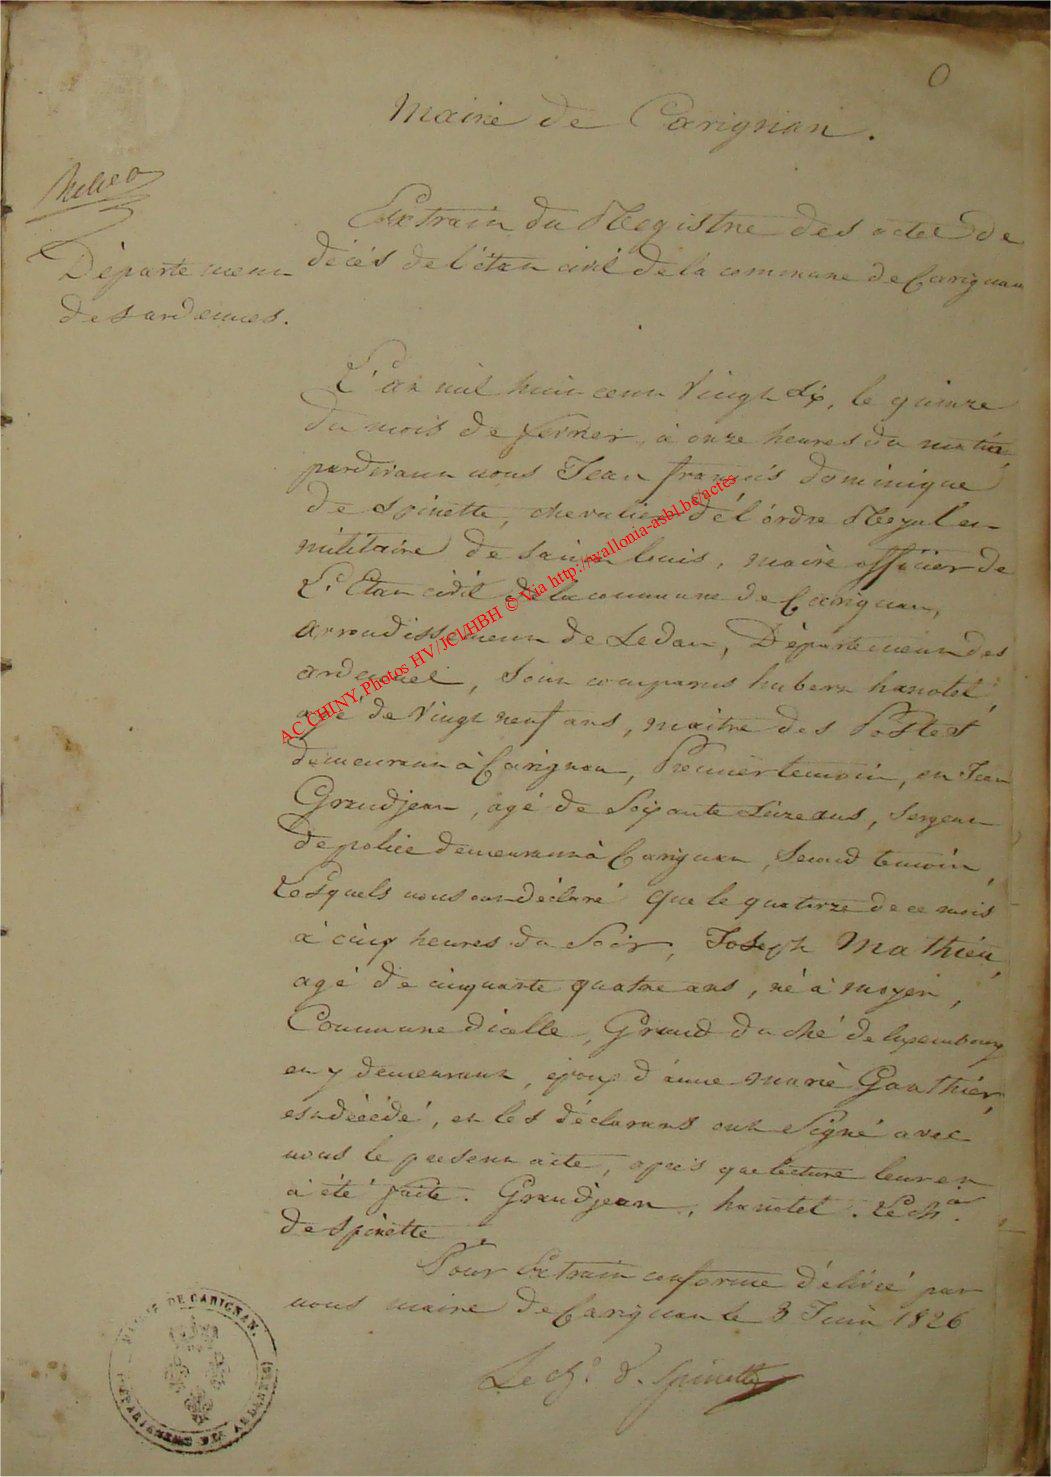 0
Mairie de Carignan.
Département
des ardennes.
Extrait du Registre des actes de
décès de l'état civil de la commune de Carignan
L'an mil huit cent Vingt Six, le quinze
du mois de fevrier, à onze heures du matin,
pardevant nous Jean françois dominique
de Spinette, chevalier de l'ordre Royal et
militaire de Saint Louis, maire officier de
L'Etat civil de la commune de Carignan,
arrondissement de Sedan, Département des
ardennes, Sont comparus hubert hanotel,
agé de Vingt neuf ans, maitre des Postes
demeurant à Carignan, Premier temoin, et Jean
Grandjean, agé de Soixante Seize ans, Sergent
de police demeurant à Carignan, Second temoin,
Lesquels nous ont déclaré que le quatorze de ce mois
à cinq heures du Soir, Joseph Mathieu,
agé de cinquante quatre ans, né à moyen,
Commune d'icelle, Grand duché de luxembourg
et y demeurant, époux d'anne marie Gauthier,
est décédé, et les déclarans ont Signé avec
nous le present acte, après que lecture leur en
à été faite. Grandjean, hanotel. Le chr.
de Spinette
Pour Extrait conforme délivré par
nous maire de Carignan le 3 Juin 1826
Le chr. d. Spinette
MAIRIE DE CARIGNAN.
DEPARTEMENT DES ARDENNES
AC CHINY, Photos HV/JCl/HBH © Via http://wallonia-asbl.be/actes